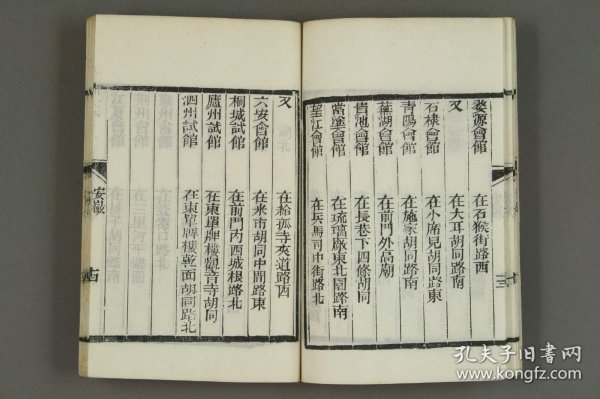 婺源會館 在石猴街路西
又 在大耳胡同路南
石棣會館 在小席兒胡同路東
青陽會館 在施家胡同路南
蕪湖會館 在前門外品廟
貴池會館 在長巷下四條胡同
當塗會館 在琉璃廠東北園路南
望江會館 在兵馬司中街路北
又 在給孤寺夾道路西
六安會館 在米市胡同中間路東
桐城試館 在前門內西城根路北
廬州試館 在東單牌樓觀音寺胡同
泗州試館 在東單牌樓乾面胡同路北
安徽
十四
孔夫子旧书网
www.kongfz.com